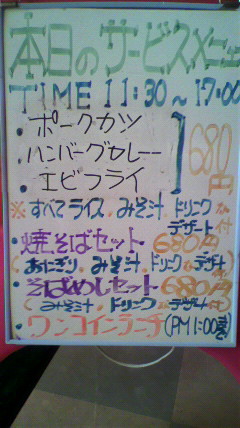 本日のサービスメニュー
TIME 11:30~17:00
・ポークカツ
・ハンバーグカレー
・エビフライ
680円
※すべてライス、みそ汁、ドリンク
デザート付
・焼そばセット 680円
(おにぎり、みそ汁、ドリンク、デザート付)
・そばめしセット 680円
(みそ汁、ドリンク、デザート付)
・ワンコインランチ(PM1:00迄)